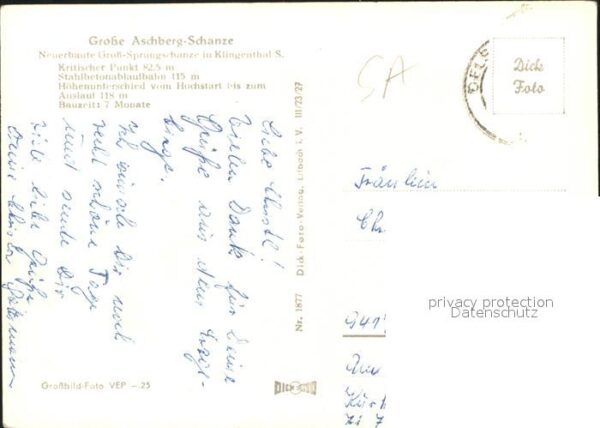 Große Aschberg-Schanze
Neuerbaute Groß-Sprungschanze in Klingenthal S.
Kritischer Punkt 82,5 m
Stahlbetonablaufbahn 115 m
Höhenunterschied vom Hochstart bis zum
Auslauf 118 m
Bauzeit: 7 Monate
Vielen Dank für Deine
Grüße aus dem
Ich wünsche Dir noch
recht schöne Tage
und sende Dir
viele liebe Grüße
Großbild-Foto VEP -.25
Nr. 1877 Dick-Foto-Verlag, Erlbach i. V. III/23/27
DICK
SA
Dick
Foto
Fräulein
Ch.
privacy protection
Datenschutz